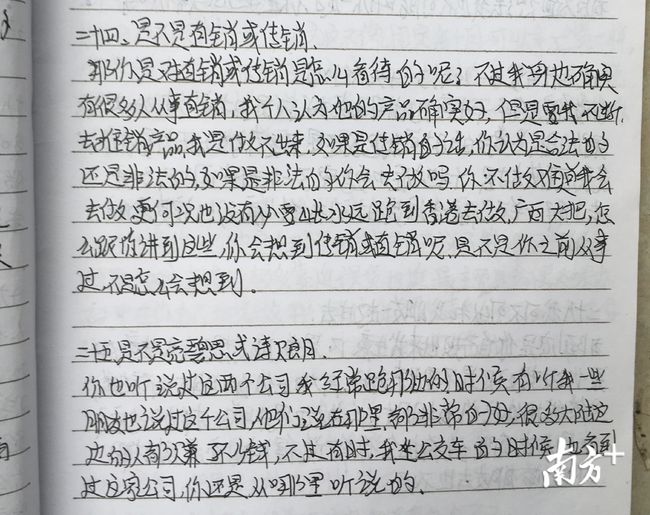 二十四、是不是直销或传销.
那你是对直销或传销是怎么看待的呢？不过我身边确实
有很多人从事直销，我个人认为他的产品确实好，但是要我不断
去推销产品，我是做不出来，如果是传销的话，你认为是合法的
还是非法的，如果是非法的你会去做吗 你不做难道我会
去做 更何况也没有必要山长水远跑到香港去做，广西大把，怎
么跟你讲到这些，你会想到传销或直销呢，是不是你之前从事
过 不是怎么会想到.
二十五 是不是亮碧思或诗贝朗.
你也听说过这两个公司 我经常跑那边的时候 有听我一些
朋友也说过这个公司，他们说在那里 都非常的好，很多大陆这
边的人都次赚不少钱，不过有时，我坐公交车的时候 也有看
过这家公司，你还是从哪里听说的.
南方+